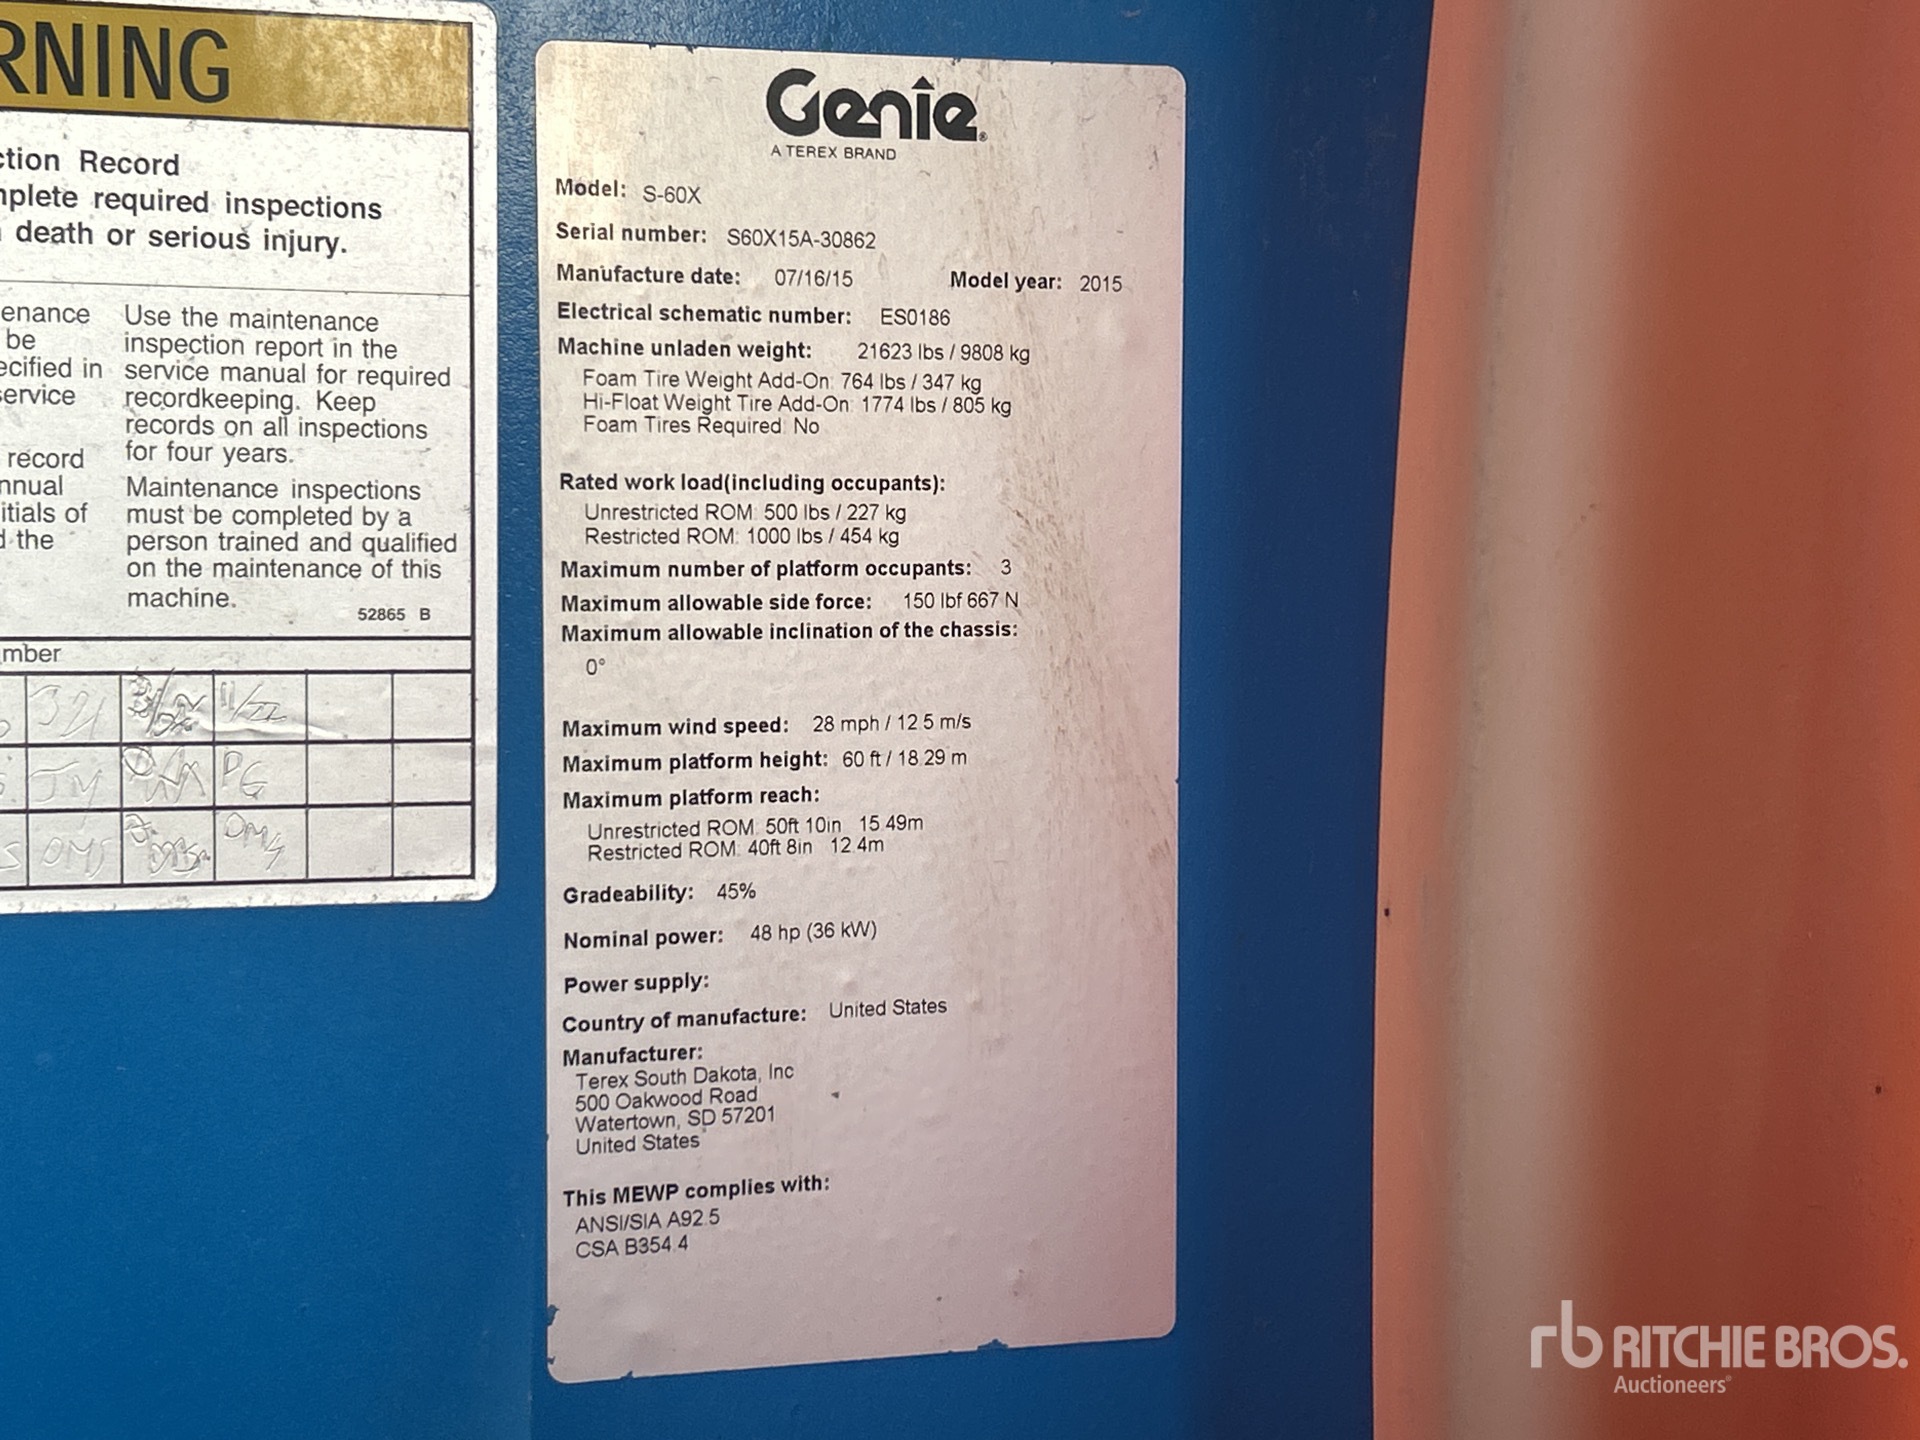 RNING
ction Record
nplete required inspections
death or serious injury.
enance
be
ecified in
service
record
nnual
itials of
d the
Use the maintenance
inspection report in the
service manual for required
recordkeeping. Keep
records on all inspections
for four years.
Maintenance inspections
must be completed by a
person trained and qualified
on the maintenance of this
machine.
52865 B
mber
321 11/22
JM PG
OMS
Genie
A TEREX BRAND
Model: S-60X
Serial number: S60X15A-30862
Manufacture date: 07/16/15 Model year: 2015
Electrical schematic number: ES0186
Machine unladen weight: 21623 lbs / 9808 kg
Foam Tire Weight Add-On: 764 lbs / 347 kg
Hi-Float Weight Tire Add-On: 1774 lbs / 805 kg
Foam Tires Required: No
Rated work load(including occupants):
Unrestricted ROM: 500 lbs / 227 kg
Restricted ROM: 1000 lbs / 454 kg
Maximum number of platform occupants: 3
Maximum allowable side force: 150 lbf 667 N
Maximum allowable inclination of the chassis:
0°
Maximum wind speed: 28 mph / 12.5 m/s
Maximum platform height: 60 ft / 18.29 m
Maximum platform reach:
Unrestricted ROM: 50ft 10in 15.49m
Restricted ROM: 40ft 8in 12.4m
Gradeability: 45%
Nominal power: 48 hp (36 kW)
Power supply:
Country of manufacture: United States
Manufacturer:
Terex South Dakota, Inc
500 Oakwood Road
Watertown, SD 57201
United States
This MEWP complies with:
ANSI/SIA A92.5
CSA B354.4
rb RITCHIE BROS.
Auctioneers